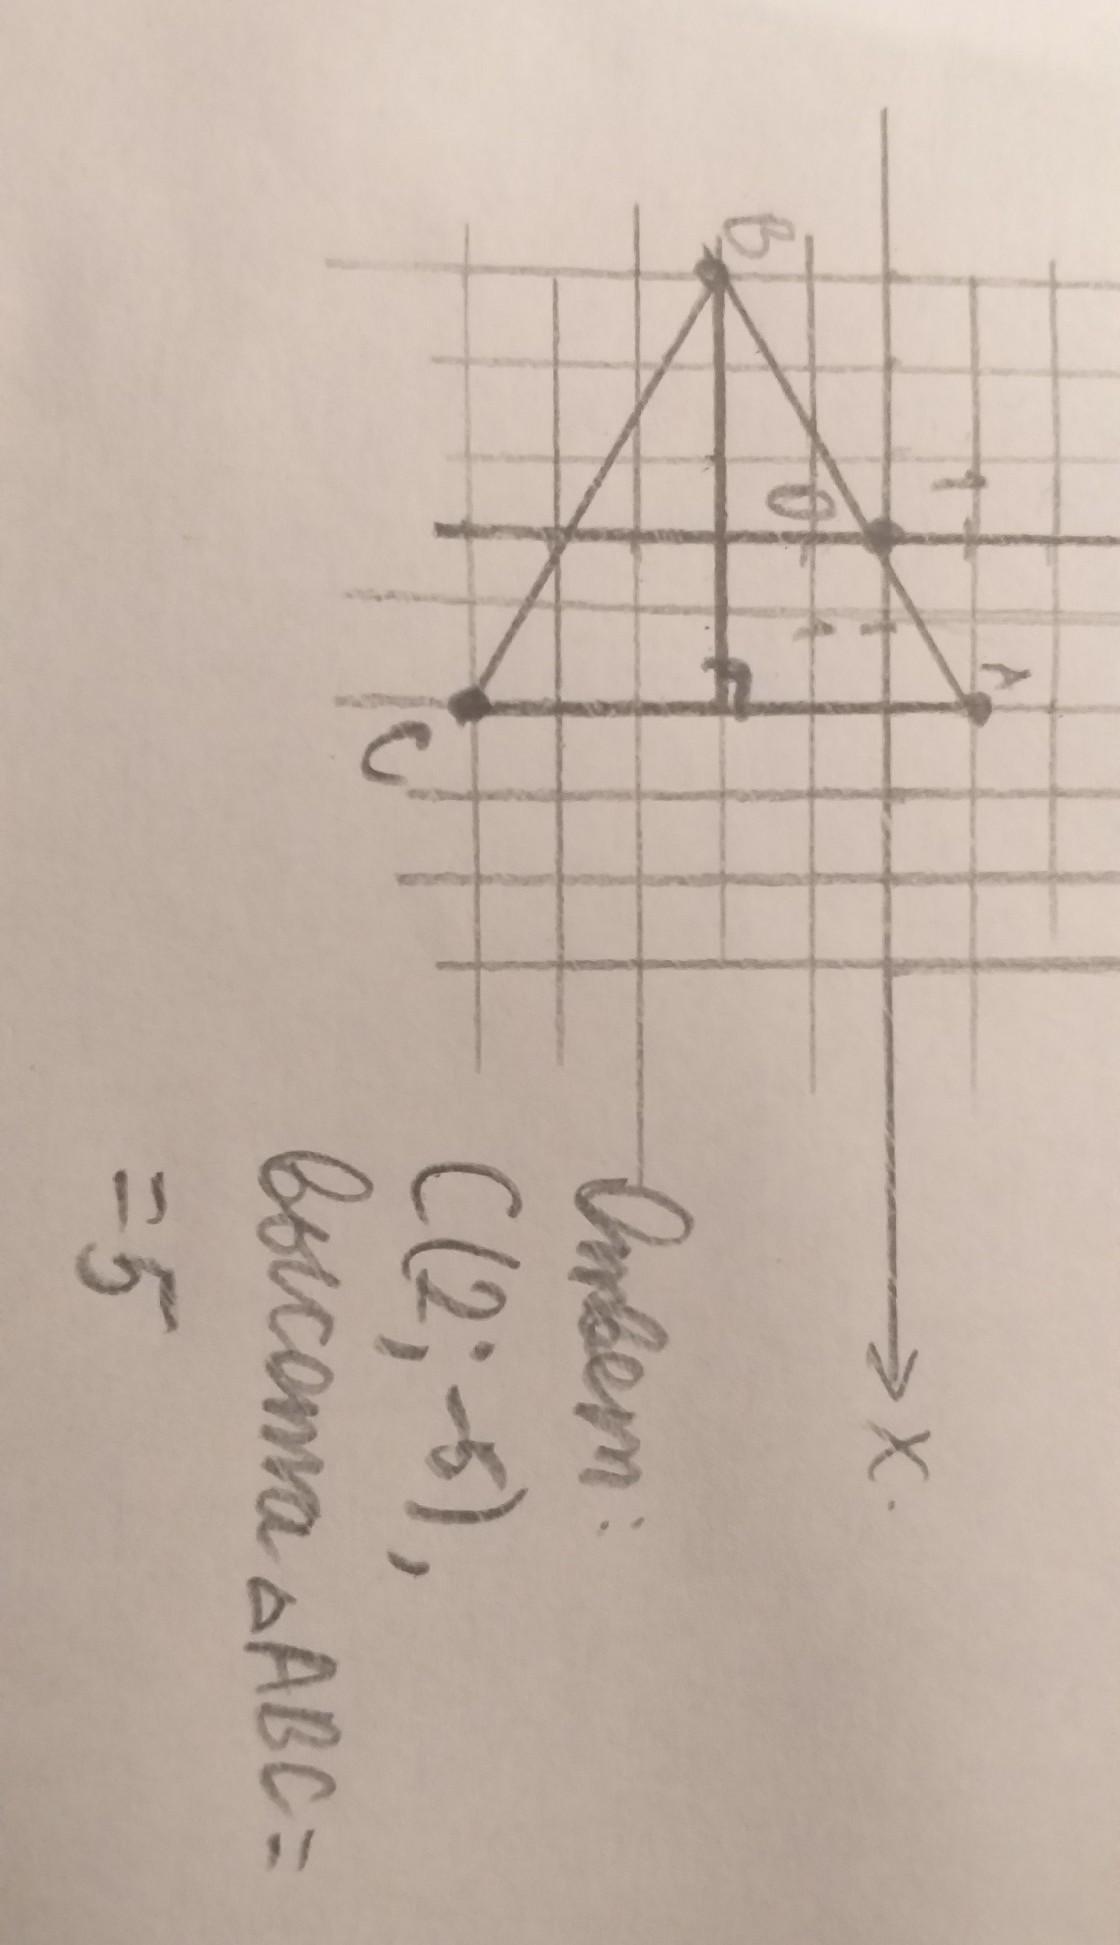 1
A
O
1
X
B
C
Ответ:
C(2; -5),
высота △ABC =
= 5